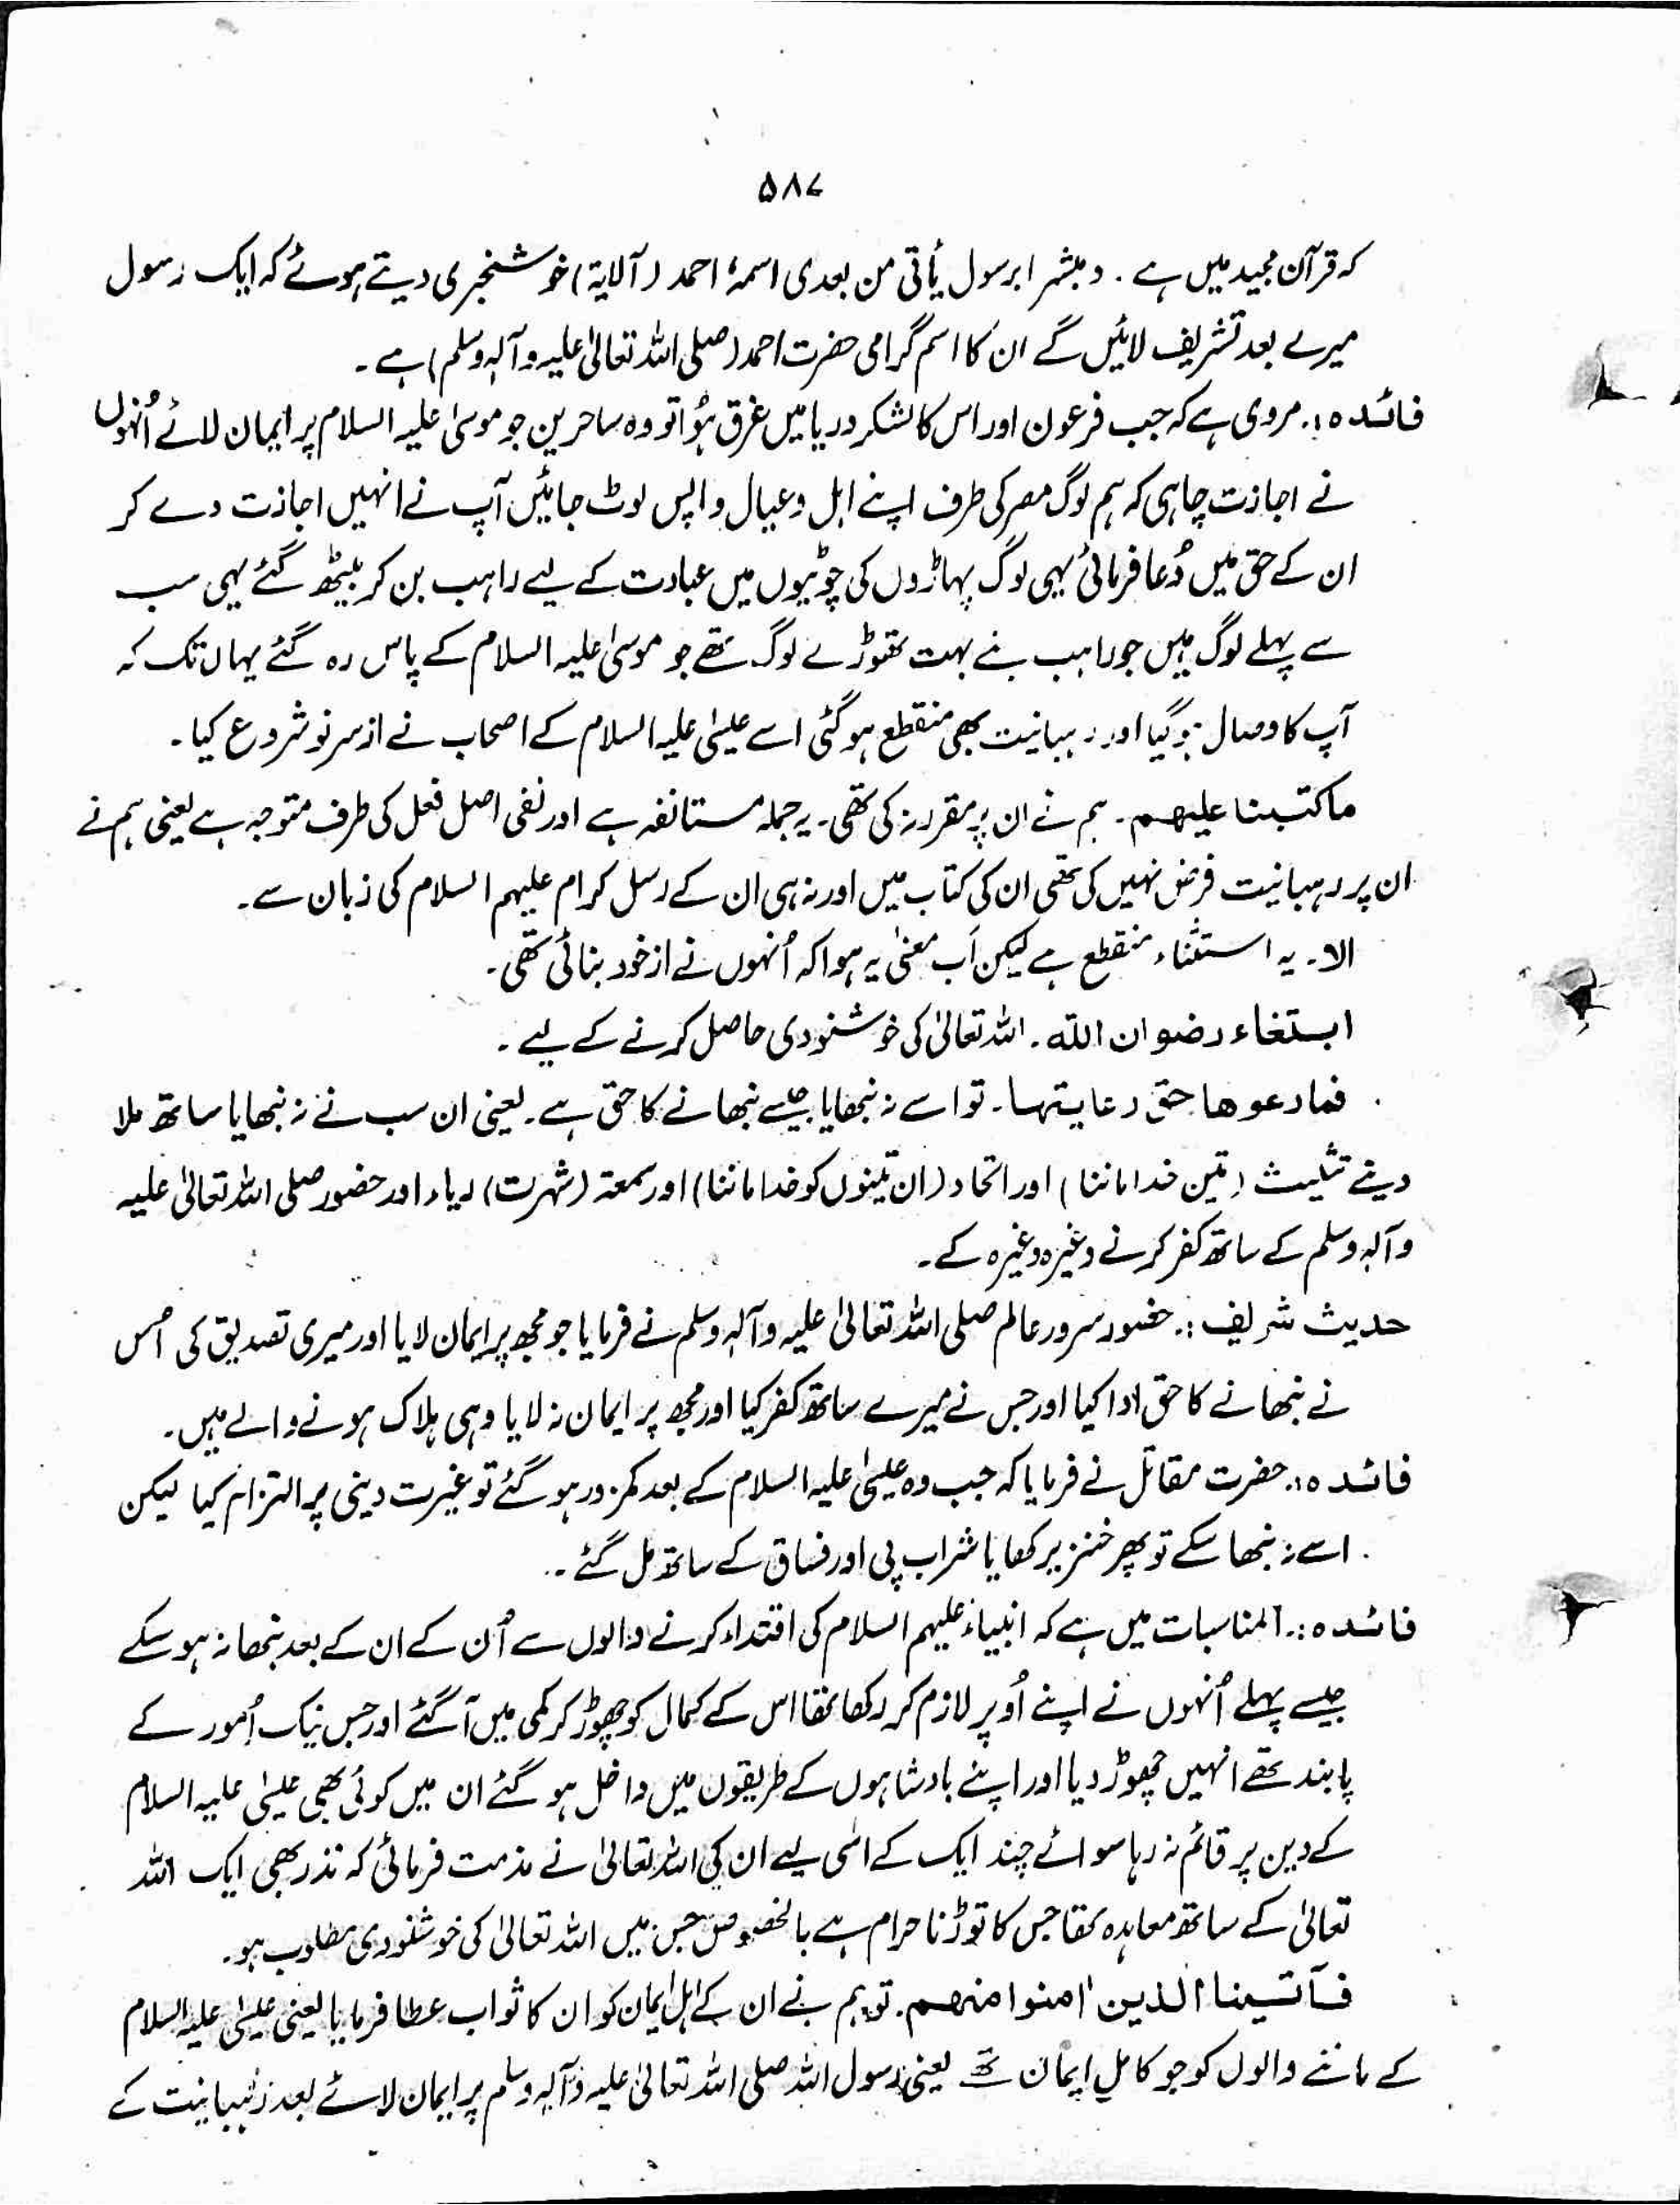 ۵۸۷
کہ قرآن مجید میں ہے ۔ ومبشرا برسول یأتی من بعدی اسمہٗ احمد (آلایۃ) خوشخبری دیتے ہوئے کہ ایک رسول
میرے بعد تشریف لائیں گے ان کا اسم گرامی حضرت احمد (صلی اللہ تعالیٰ علیہ وآلہٖ وسلم) ہے ۔
فائدہ :۔ مروی ہے کہ جب فرعون اور اس کا لشکر دریا میں غرق ہُوا تو وہ ساحرین جو موسیٰ علیہ السلام پر ایمان لائے اُنہوں
نے اجازت چاہی کہ ہم لوگ مصر کی طرف اپنے اہل و عیال واپس لوٹ جائیں آپ نے انہیں اجازت دے کر
ان کے حق میں دُعا فرمائی یہی لوگ پہاڑوں کی چوٹیوں میں عبادت کے لیے راہب بن کر بیٹھ گئے یہی سب
سے پہلے لوگ ہیں جو راہب بنے بہت تھوڑے لوگ تھے جو موسیٰ علیہ السلام کے پاس رہ گئے یہاں تک کہ
آپ کا وصال ہوگیا اور رہبانیت بھی منقطع ہوگئی اسے عیسیٰ علیہ السلام کے اصحاب نے ازسرنو شروع کیا ۔
ماکتبنا علیھم ۔ ہم نے ان پر مقرر نہ کی تھی ۔ یہ جملہ مستانفہ ہے اور نفی اصل فعل کی طرف متوجہ ہے یعنی ہم نے
ان پر رہبانیت فرض نہیں کی تھی ان کی کتاب میں اور نہ ہی ان کے رسل کرام علیہم السلام کی زبان سے ۔
الا ۔ یہ استثناء منقطع ہے لیکن اَب معنیٰ یہ ہوا کہ اُنہوں نے ازخود بنائی تھی ۔
ابتغاء رضوان اللہ ۔ اللہ تعالیٰ کی خوشنودی حاصل کرنے کے لیے ۔
فما رعوھا حق رعایتھا ۔ تو اسے نہ نبھایا جیسے نبھانے کا حق ہے ۔ یعنی ان سب نے نہ نبھایا ساتھ ملا
دیئے تثلیث (تین خدا ماننا) اور اتحاد (ان تینوں کو خدا ماننا) اور سمعۃ (شہرت) ریاء اور حضور صلی اللہ تعالیٰ علیہ
وآلہٖ وسلم کے ساتھ کفر کرنے وغیرہ وغیرہ کے ۔
حدیث شریف :۔ حضور سرور عالم صلی اللہ تعالیٰ علیہ وآلہٖ وسلم نے فرمایا جو مجھ پر ایمان لایا اور میری تصدیق کی اُس
نے نبھانے کا حق ادا کیا اور جس نے میرے ساتھ کفر کیا اور مجھ پر ایمان نہ لایا وہی ہلاک ہونے والے ہیں ۔
فائدہ :۔ حضرت مقاتل نے فرمایا کہ جب وہ عیسیٰ علیہ السلام کے بعد کمزور ہو گئے تو غیرت دینی پر التزام کیا لیکن
اسے نہ نبھا سکے تو پھر خنزیر کھایا شراب پی اور فساق کے ساتھ مل گئے ۔
فائدہ :۔ المناسبات میں ہے کہ انبیاء علیہم السلام کی اقتداء کرنے والوں سے اُن کے ان کے بعد نبھا نہ ہو سکے
جیسے پہلے اُنہوں نے اپنے اُوپر لازم کر رکھا تھا اس کے کمال کو چھوڑ کر کمی میں آ گئے اور جس نیک اُمور کے
پابند تھے انہیں چھوڑ دیا اور اپنے بادشاہوں کے طریقوں میں داخل ہو گئے ان میں کوئی بھی عیسیٰ علیہ السلام
کے دین پر قائم نہ رہا سوائے چند ایک کے اسی لیے ان کی اللہ تعالیٰ نے مذمت فرمائی کہ نذر بھی ایک اللہ
تعالیٰ کے ساتھ معاہدہ تھا جس کا توڑنا حرام ہے بالخصوص جس میں اللہ تعالیٰ کی خوشنودی مطلوب ہو ۔
فآتینا الذین اٰمنوا منھم ۔ تو ہم نے ان کے اہل ایمان کو ان کا ثواب عطا فرمایا یعنی عیسیٰ علیہ السلام
کے ماننے والوں کو جو کامل ایمان تھے یعنی رسول اللہ صلی اللہ تعالیٰ علیہ وآلہٖ وسلم پر ایمان لائے بعد رہبانیت کے